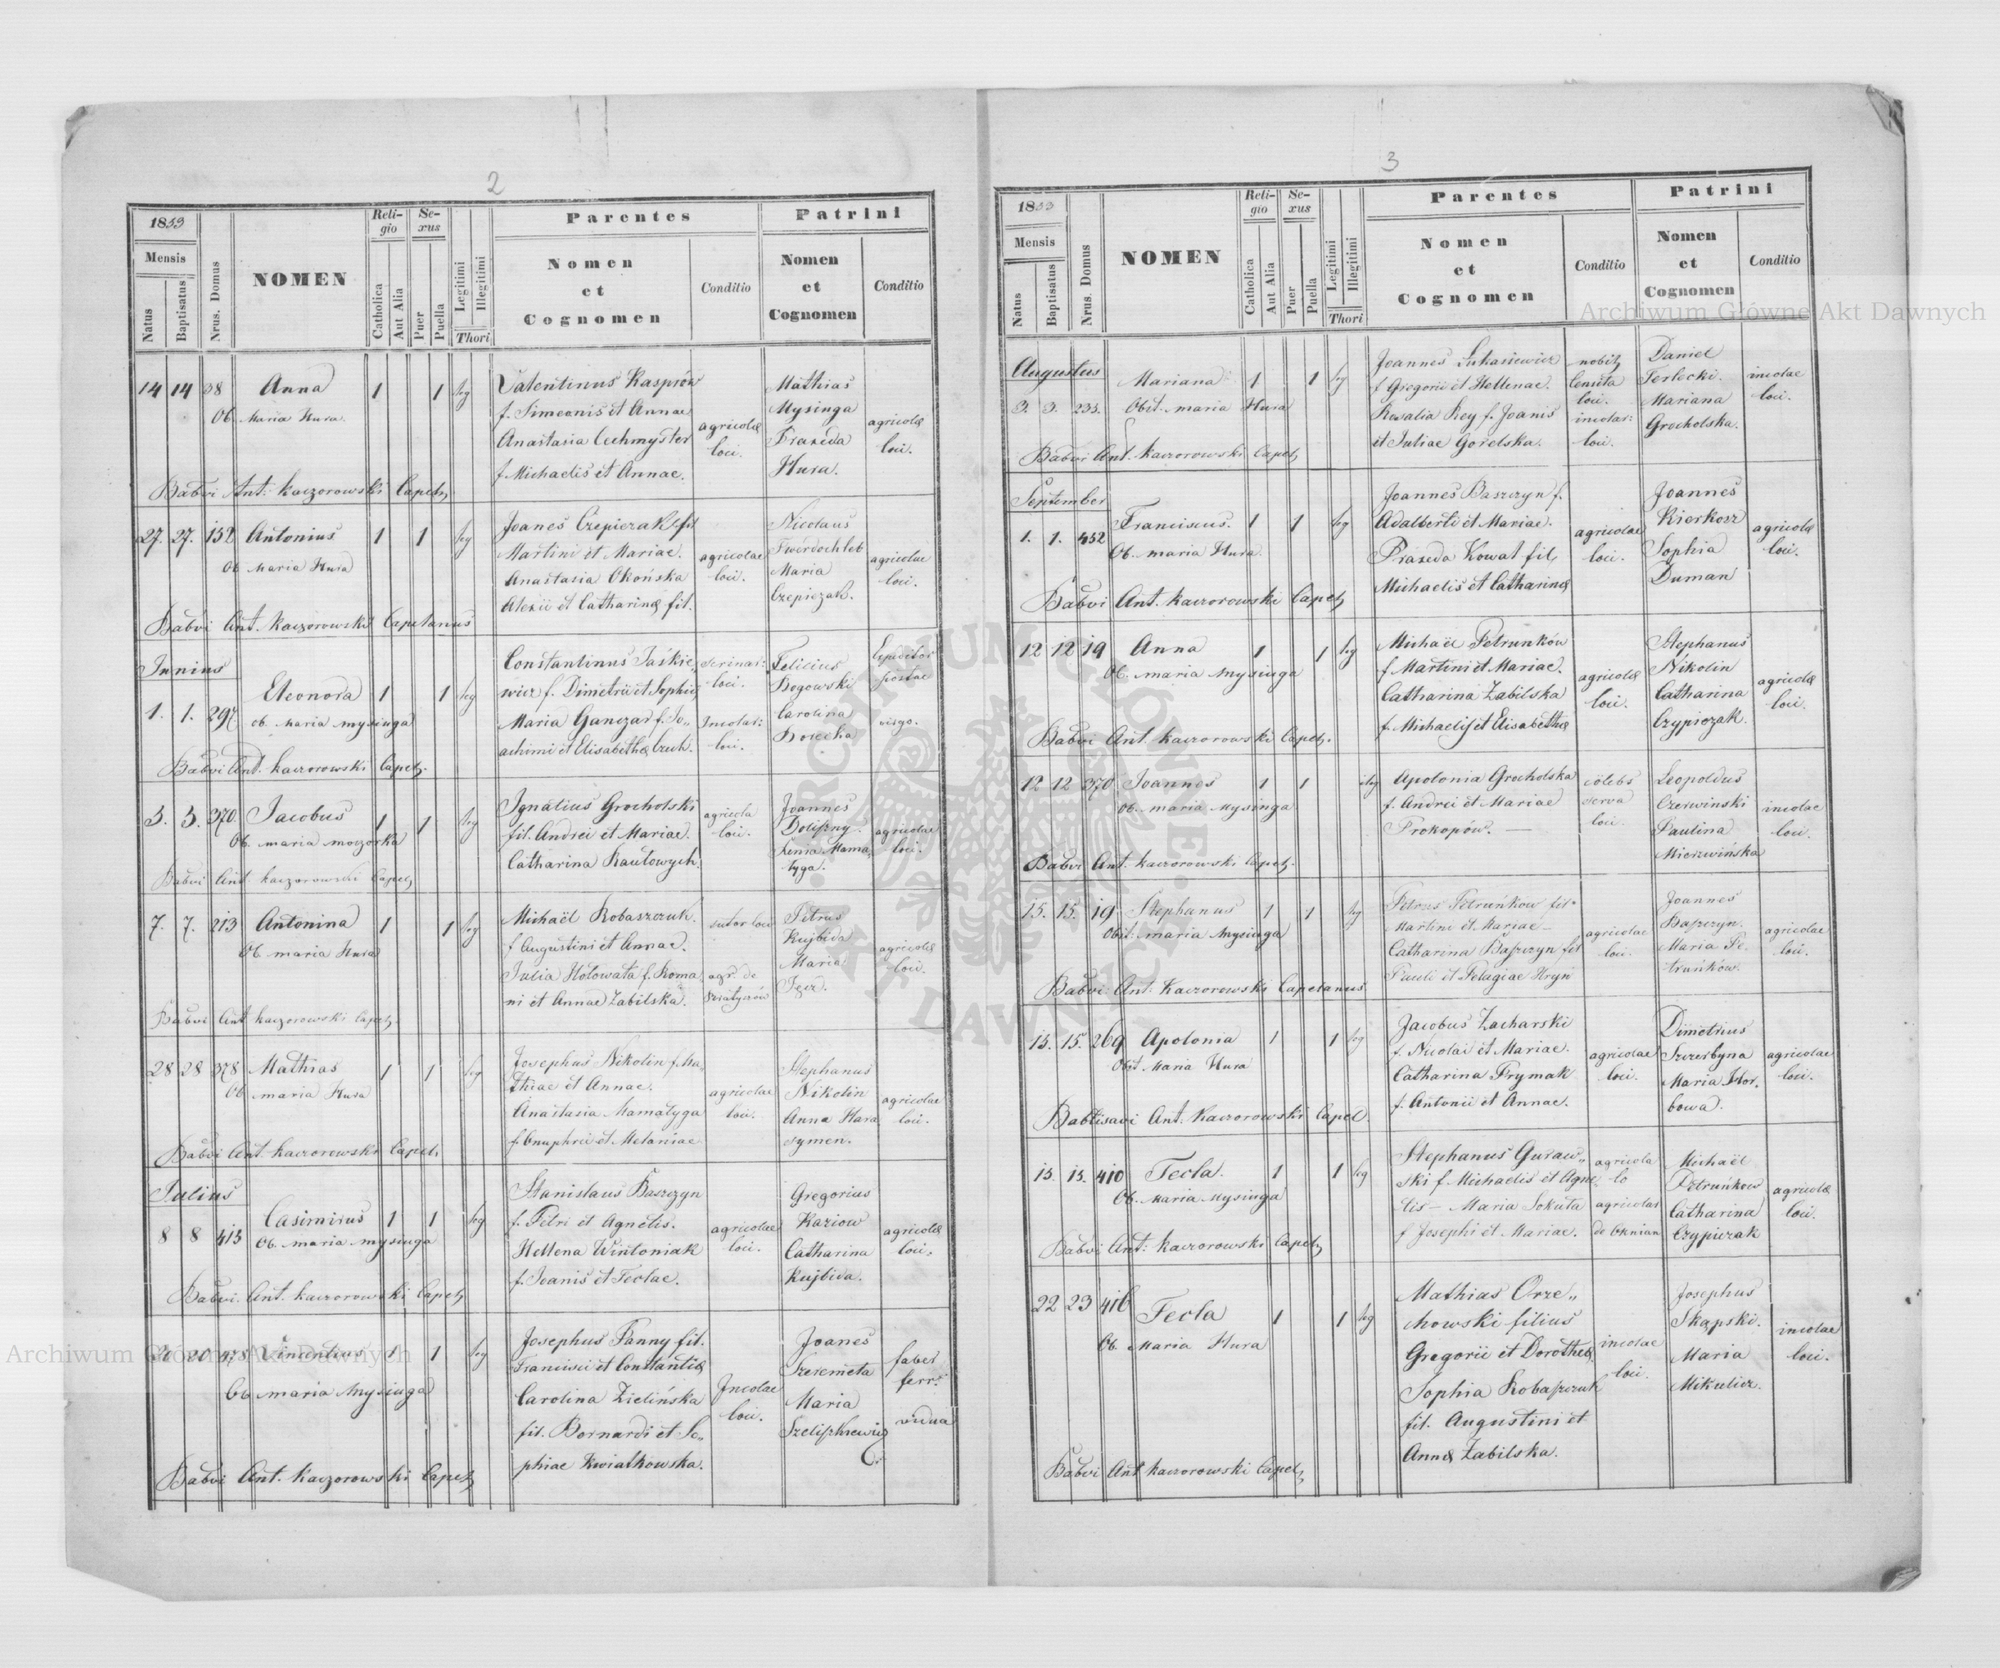 2
1853
Mensis
Natus
Baptisatus
Nrus. Domus
NOMEN
Reli-
gio
Catholica
Aut Alia
Se-
xus
Puer
Puella
Legitimi
Illegitimi
Thori
Parentes
Nomen
et
Cognomen
Conditio
Patrini
Nomen
et
Cognomen
Conditio
14 14 98 Anna 1 1 leg
Ob. Maria Hura.
Valentinus Kasprów
f. Simeonis et Annae
Anastasia Cechmyster
f. Michaelis et Annae.
agricolae
loci.
Mathias
Mysinga
Praxeda
Hura.
agricolae
loci.
Babvi Ant. Kaczorowski Capel.
27. 27. 152 Antonius 1 1 leg
Ob Maria Hura
Joanes Czepiczak fil
Martini et Mariae.
Anastasia Okońska
Alexii et Catharinae fil.
agricolae
loci.
Nicolaus
Twerdochleb
Maria
Czepiczak.
agricolae
loci.
Babvi Ant. Kaczorowski Capelanus
Junius
1. 1. 297 Eleonora 1 1 leg
ob. Maria Mysinga
Constantinus Jaśkie-
wicz f. Dimetrii et Sophiae
Maria Ganczar f. Jo-
achimi et Elisabethae Czuh.
loci.
Incolae
loci.
Felicius
Bogowski
Carolina
Expeditor
postae
virgo.
Babvi Ant. Kaczorowski Capel.
3. 3. 370. Jacobus 1 1 leg
Ob. Maria Moczorka
Ignatius Grocholski
fil. Andrei et Mariae.
Catharina Kautowych.
agricola
loci.
Joannes
Xenia Mama-
tyga.
agricolae
loci.
Babvi Ant. Kaczorowski Capel.
7. 7. 213 Antonina 1 1 leg
Ob. Maria Hura
Michaël Kobaszczuk.
f Augustini et Annae.
Julia Hołowata f. Roma
ni et Annae Zabilska.
sutor loci
agr. de
Petrus
Kujbida
Maria
agricolae
loci.
Babvi Ant Kaczorowski Capel.
28 28 378 Mathias 1 1 leg
Ob Maria Hura
Josephus Nikolin f. Ma-
thiae et Annae.
Anastasia Mamatyga
f. Onuphrii et Melaniae
agricolae
loci.
Stephanus
Nikolin
Anna Hara
symen.
agricolae
loci.
Babvi Ant. Kaczorowski Capel.
Julius
8 8 413 Casimirus 1 1 leg
Ob. Maria Mysinga
Stanislaus Baszczyn
f. Petri et Agnetis.
Hellena Wintoniak
f. Joanis et Teclae.
agricolae
loci.
Gregorius
Kaziow
Catharina
Kujbida.
agricolae
loci.
Babvi. Ant. Kaczorowski Capel.
20 20 478 Vincentius 1 1 leg
Ob Maria Mysinga
Josephus Panny fil.
Francisci et Constantiae
Carolina Zielińska
fil. Bernardi et So-
phiae Kwiatkowska.
Incolae
loci.
Joanes
Szeremeta
Maria
faber
ferr.
vidua
Babvi Ant. Kaczorowski Capel.
3
1853
Mensis
Natus
Baptisatus
Nrus. Domus
NOMEN
Reli-
gio
Catholica
Aut Alia
Se-
xus
Puer
Puella
Legitimi
Illegitimi
Thori
Parentes
Nomen
et
Cognomen
Conditio
Patrini
Nomen
et
Cognomen
Conditio
Augustus
3. 3. 233. Mariana 1 1 leg
Obst. Maria Hura
Joannes Łukasiewicz
f Gregorii et Hellenae.
Rosalia Rey f. Joanis
et Juliae Gorelska.
nobil.
Censita
loci.
incolae:
loci.
Daniel
Terlecki.
Mariana
Grocholska.
incolae
loci.
Babvi Ant. Kaczorowski Capel.
September
1. 1. 452 Franciscus. 1 1 leg
Ob. Maria Hura
Joannes Baszczyn f.
Adalberti et Mariae.
Praxeda Kowal fil.
Michaelis et Catharinae
agricolae
loci.
Joannes
Kierkosz
Sophia
Duman
agricolae
loci.
Babvi Ant. Kaczorowski Capel.
12 12 19 Anna 1 1 leg
Ob. Maria Mysinga
Michaël Petrunków
f Martini et Mariae.
Catharina Zabilska
f. Michaelis et Elisabethae
agricolae
loci.
Stephanus
Nikolin
Catharina
Czypiczak.
agricolae
loci.
Babvi Ant. Kaczorowski Capel.
12 12 370 Joannes 1 1 illeg
Ob. Maria Mysinga
Apolonia Grocholska
f. Andrei et Mariae
Prokopów. —
celebs
serva
loci
Leopoldus
Czerwinski
Paulina
Mierzwińska
incolae
loci.
Babvi Ant. Kaczorowski Capel.
15. 15. 19 Stephanus 1 1 leg
Obst. Maria Mysinga
Petrus Petruńkow fil.
Martini et Mariae —
Catharina Baszczyn fil
Pauli et Pelagiae Hryń
agricolae
loci.
Joannes
Baszczyn.
Maria Pe-
truńków.
agricolae
loci.
Babvi Ant. Kaczorowski Capelanus.
15. 15. 269 Apolonia 1 1 leg
Obst. Maria Hura
Jacobus Zacharski
f. Nicolai et Mariae.
Catharina Frymak
f. Antonii et Annae.
agricolae
loci.
Dimetrius
Szczerbyna
Maria Hor-
bowa.
agricolae
loci.
Babtisavi Ant. Kaczorowski Capel.
15. 15. 410 Tecla. 1 1 leg
Ob. Maria Mysinga
Stephanus Guraw-
ski f Michaelis et Agne
tis — Maria Sokuła
f Josephi et Mariae.
agricola
lo
agricolae
de Oknian
Michaël
Petruńkow
Catharina
Czypiczak
agricolae
loci.
Babvi Ant. Kaczorowski Capel.
22 23 416 Tecla 1 1 leg
Ob. Maria Hura
Mathias Orze-
chowski filius
Gregorii et Dorotheae
Sophia Kobaszczuk
fil. Augustini et
Annae Zabilska.
incolae
loci.
Josephus
Skąpski.
Maria
Mikulicz.
incolae
loci.
Babvi Ant Kaczorowski Capel.
Archiwum Główne Akt Dawnych
Archiwum Główne Akt Dawnych
ARCHIWUM GŁÓWNE AKT DAWNYCH